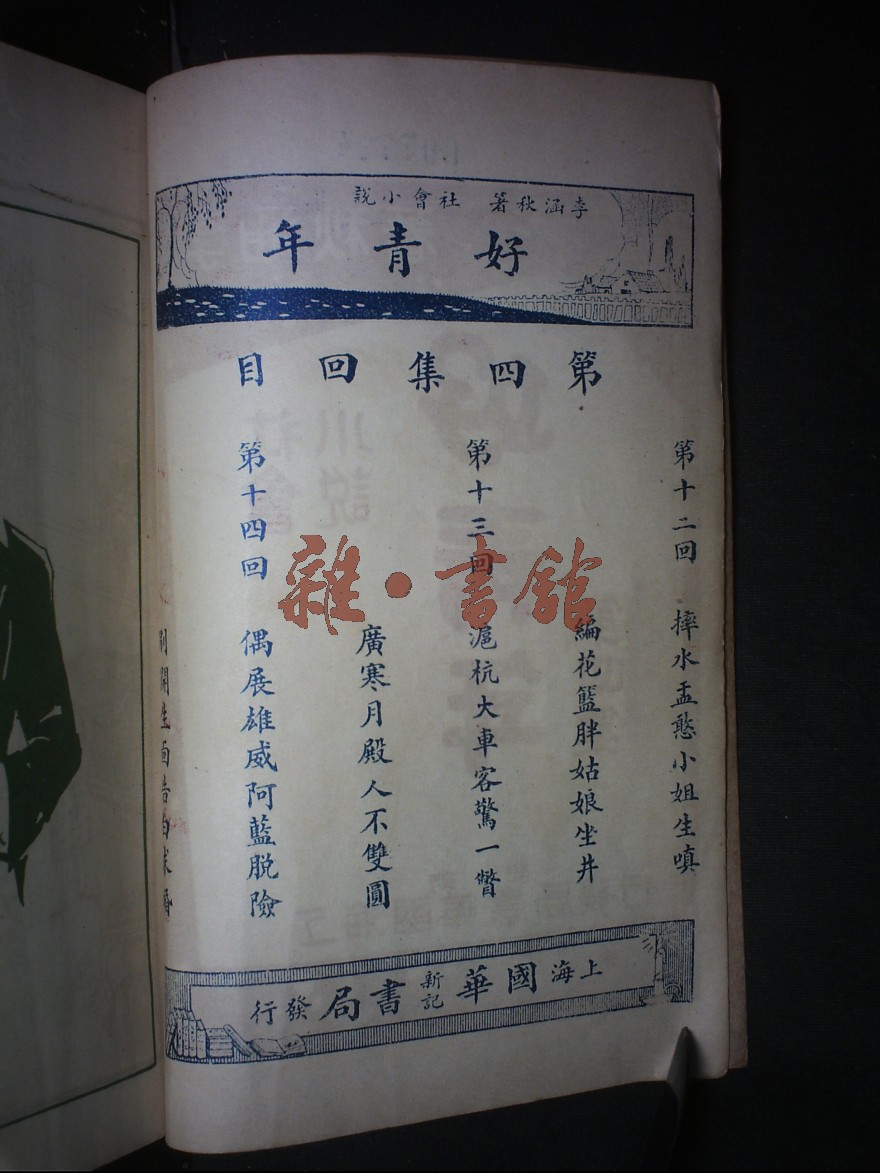 李涵秋著 社會小說
好青年
第四集回目
第十二回 摔水盂憨小姐生嗔
編花籃胖姑娘坐井
第十三回 滬杭大車客驚一瞥
廣寒月殿人不雙圓
第十四回 偶展雄威阿藍脫險
別開生面告白求婚
上海國華新記書局發行
雜·書館